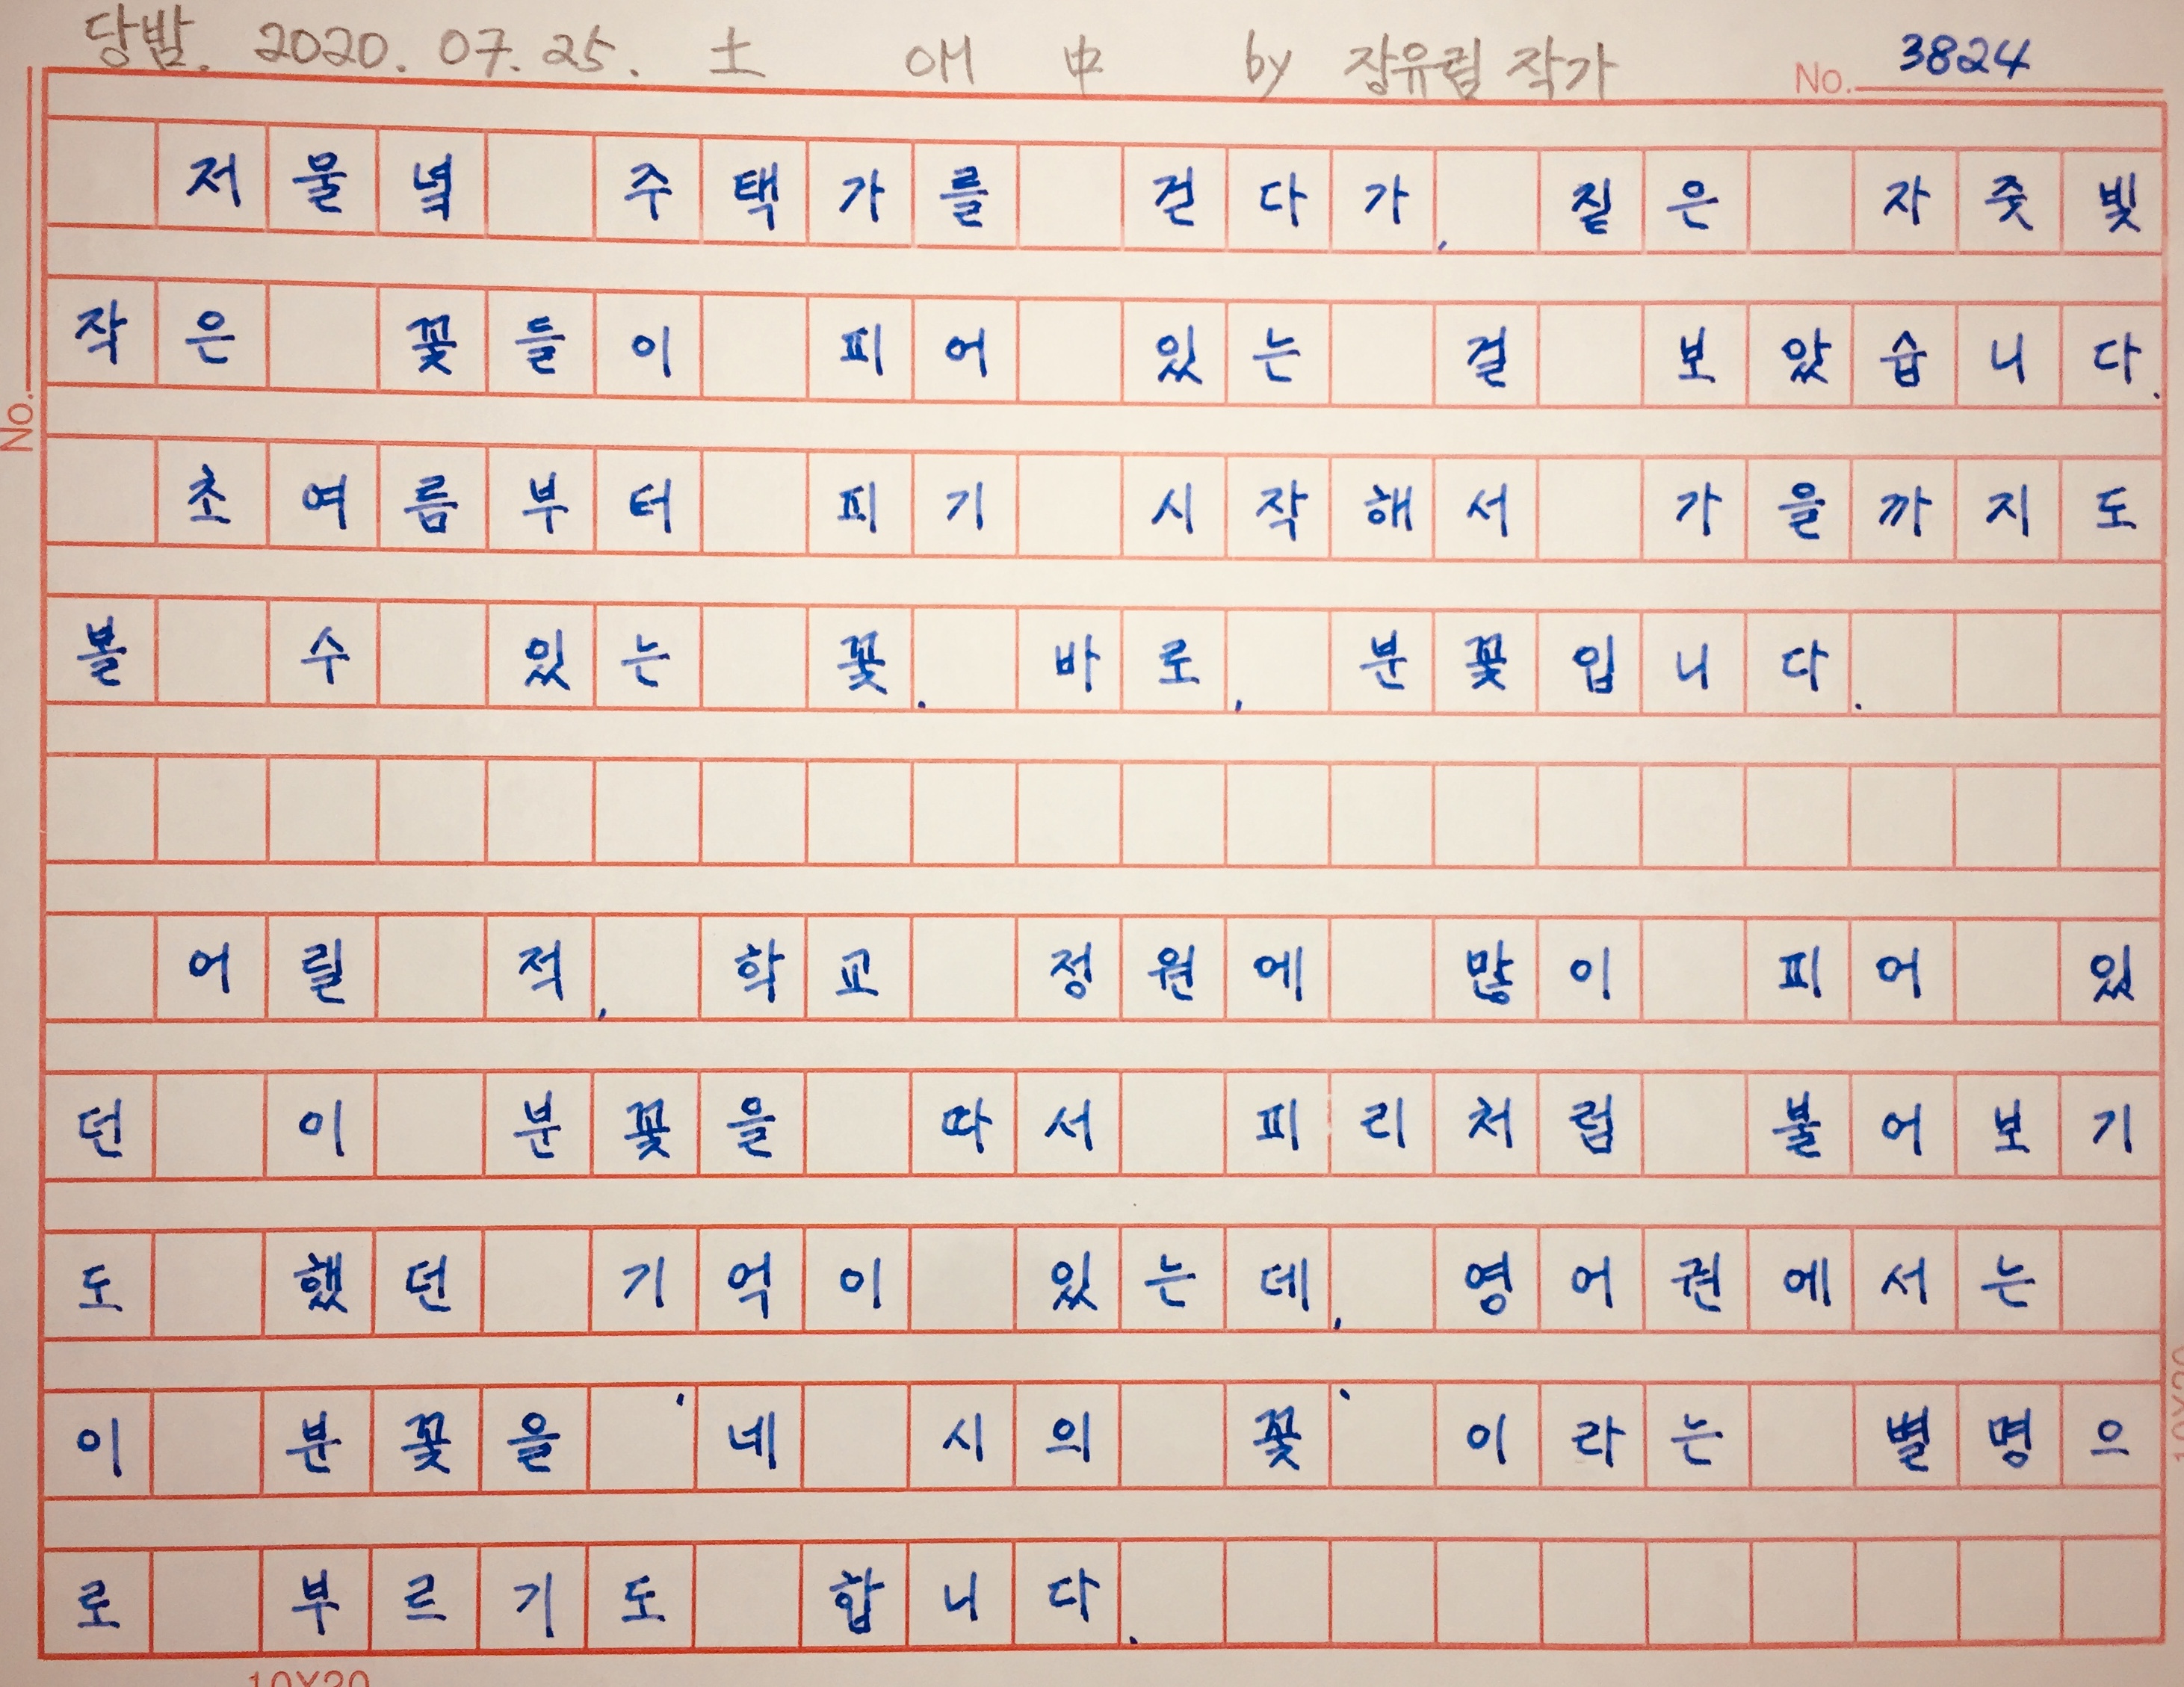 당밤. 2020. 07. 25. 土 애 中 by 장유림 작가 No. 3824
저물녘 주택가를 걷다가, 짙은 자줏빛
작은 꽃들이 피어 있는 걸 보았습니다.
No.
초여름부터 피기 시작해서 가을까지도
볼 수 있는 꽃. 바로, 분꽃입니다.
어릴 적, 학교 정원에 많이 피어 있
던 이 분꽃을 따서 피리처럼 불어보기
도 했던 기억이 있는데, 영어권에서는
이 분꽃을 '네 시의 꽃'이라는 별명으
로 부르기도 합니다.
10X20